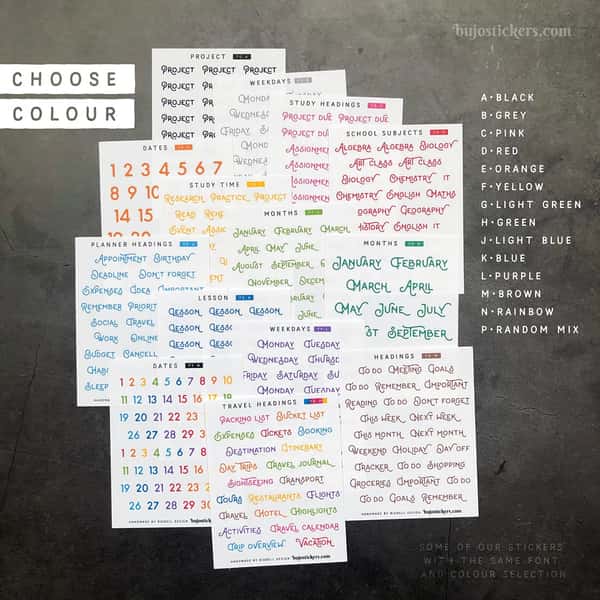 bujostickers.com
CHOOSE
COLOUR
A•BLACK
B•GREY
C•PINK
D•RED
E•ORANGE
F•YELLOW
G•LIGHT GREEN
H•GREEN
J•LIGHT BLUE
K•BLUE
L•PURPLE
M•BROWN
N•RAINBOW
P•RANDOM MIX
PROJECT
PROJECT PROJECT PROJECT
PROJECT PROJECT
PROJECT
PROJECT
PROJECT
WEEKDAYS
MONDAY
WEDNESDAY
FRIDAY
MONDAY
STUDY HEADINGS
PROJECT DUE PROJECT DUE
PROJECT DUE
ASSIGNMENT
ASSIGNMENT
SCHOOL SUBJECTS
ALGEBRA ALGEBRA BIOLOGY
ART CLASS ART CLASS
BIOLOGY CHEMISTRY IT
CHEMISTRY ENGLISH MATHS
GEOGRAPHY GEOGRAPHY
HISTORY ENGLISH IT
DATES
1 2 3 4 5 6 7
8 9 10
14 15
STUDY TIME
RESEARCH PRACTICE PROJECT
READ
EVENT
MONTHS
JANUARY FEBRUARY MARCH
APRIL MAY JUNE
AUGUST SEPTEMBER
MONTHS
JANUARY FEBRUARY
MARCH APRIL
MAY JUNE JULY
SEPTEMBER
PLANNER HEADINGS
APPOINTMENT BIRTHDAY
DEADLINE DON'T FORGET
EXPENSES IDEA IMPORTANT
REMEMBER
SOCIAL TRAVEL
WORK ONLINE
BUDGET
SLEEP
LESSON
LESSON LESSON LESSON
LESSON LESSON LESSON
WEEKDAYS
MONDAY TUESDAY
WEDNESDAY
FRIDAY SATURDAY
MONDAY TUESDAY
DATES
1 2 3 4 5 6 7 8 9 10
11 12 13 14 15 16 17 18
19 20 21 22 23 24 25
26 27 28 29 30 31
1 2 3 4 5 6 7 8 9 10
11 12 13 14 15 16 17 18
19 20 21 22 23 24 25
26 27 28 29 30 31
HANDMADE BY BIGBELL DESIGN
TRAVEL HEADINGS
PACKING LIST BUCKET LIST
EXPENSES TICKETS BOOKING
DESTINATION ITINERARY
DAY TRIPS TRAVEL JOURNAL
SIGHTSEEING TRANSPORT
TOURS RESTAURANTS FLIGHTS
TRAVEL HOTEL HIGHLIGHTS
ACTIVITIES TRAVEL CALENDAR
TRIP OVERVIEW VACATION
bujostickers.com
HEADINGS
TO DO MEETING GOALS
TO DO REMEMBER IMPORTANT
READING TO DO DON'T FORGET
THIS WEEK NEXT WEEK
THIS MONTH NEXT MONTH
WEEKEND HOLIDAY DAY OFF
TRACKER TO DO SHOPPING
GROCERIES IMPORTANT TO DO
TO DO GOALS REMEMBER
bujostickers.com
SOME OF OUR STICKERS
WITH THE SAME FONT
AND COLOUR SELECTION